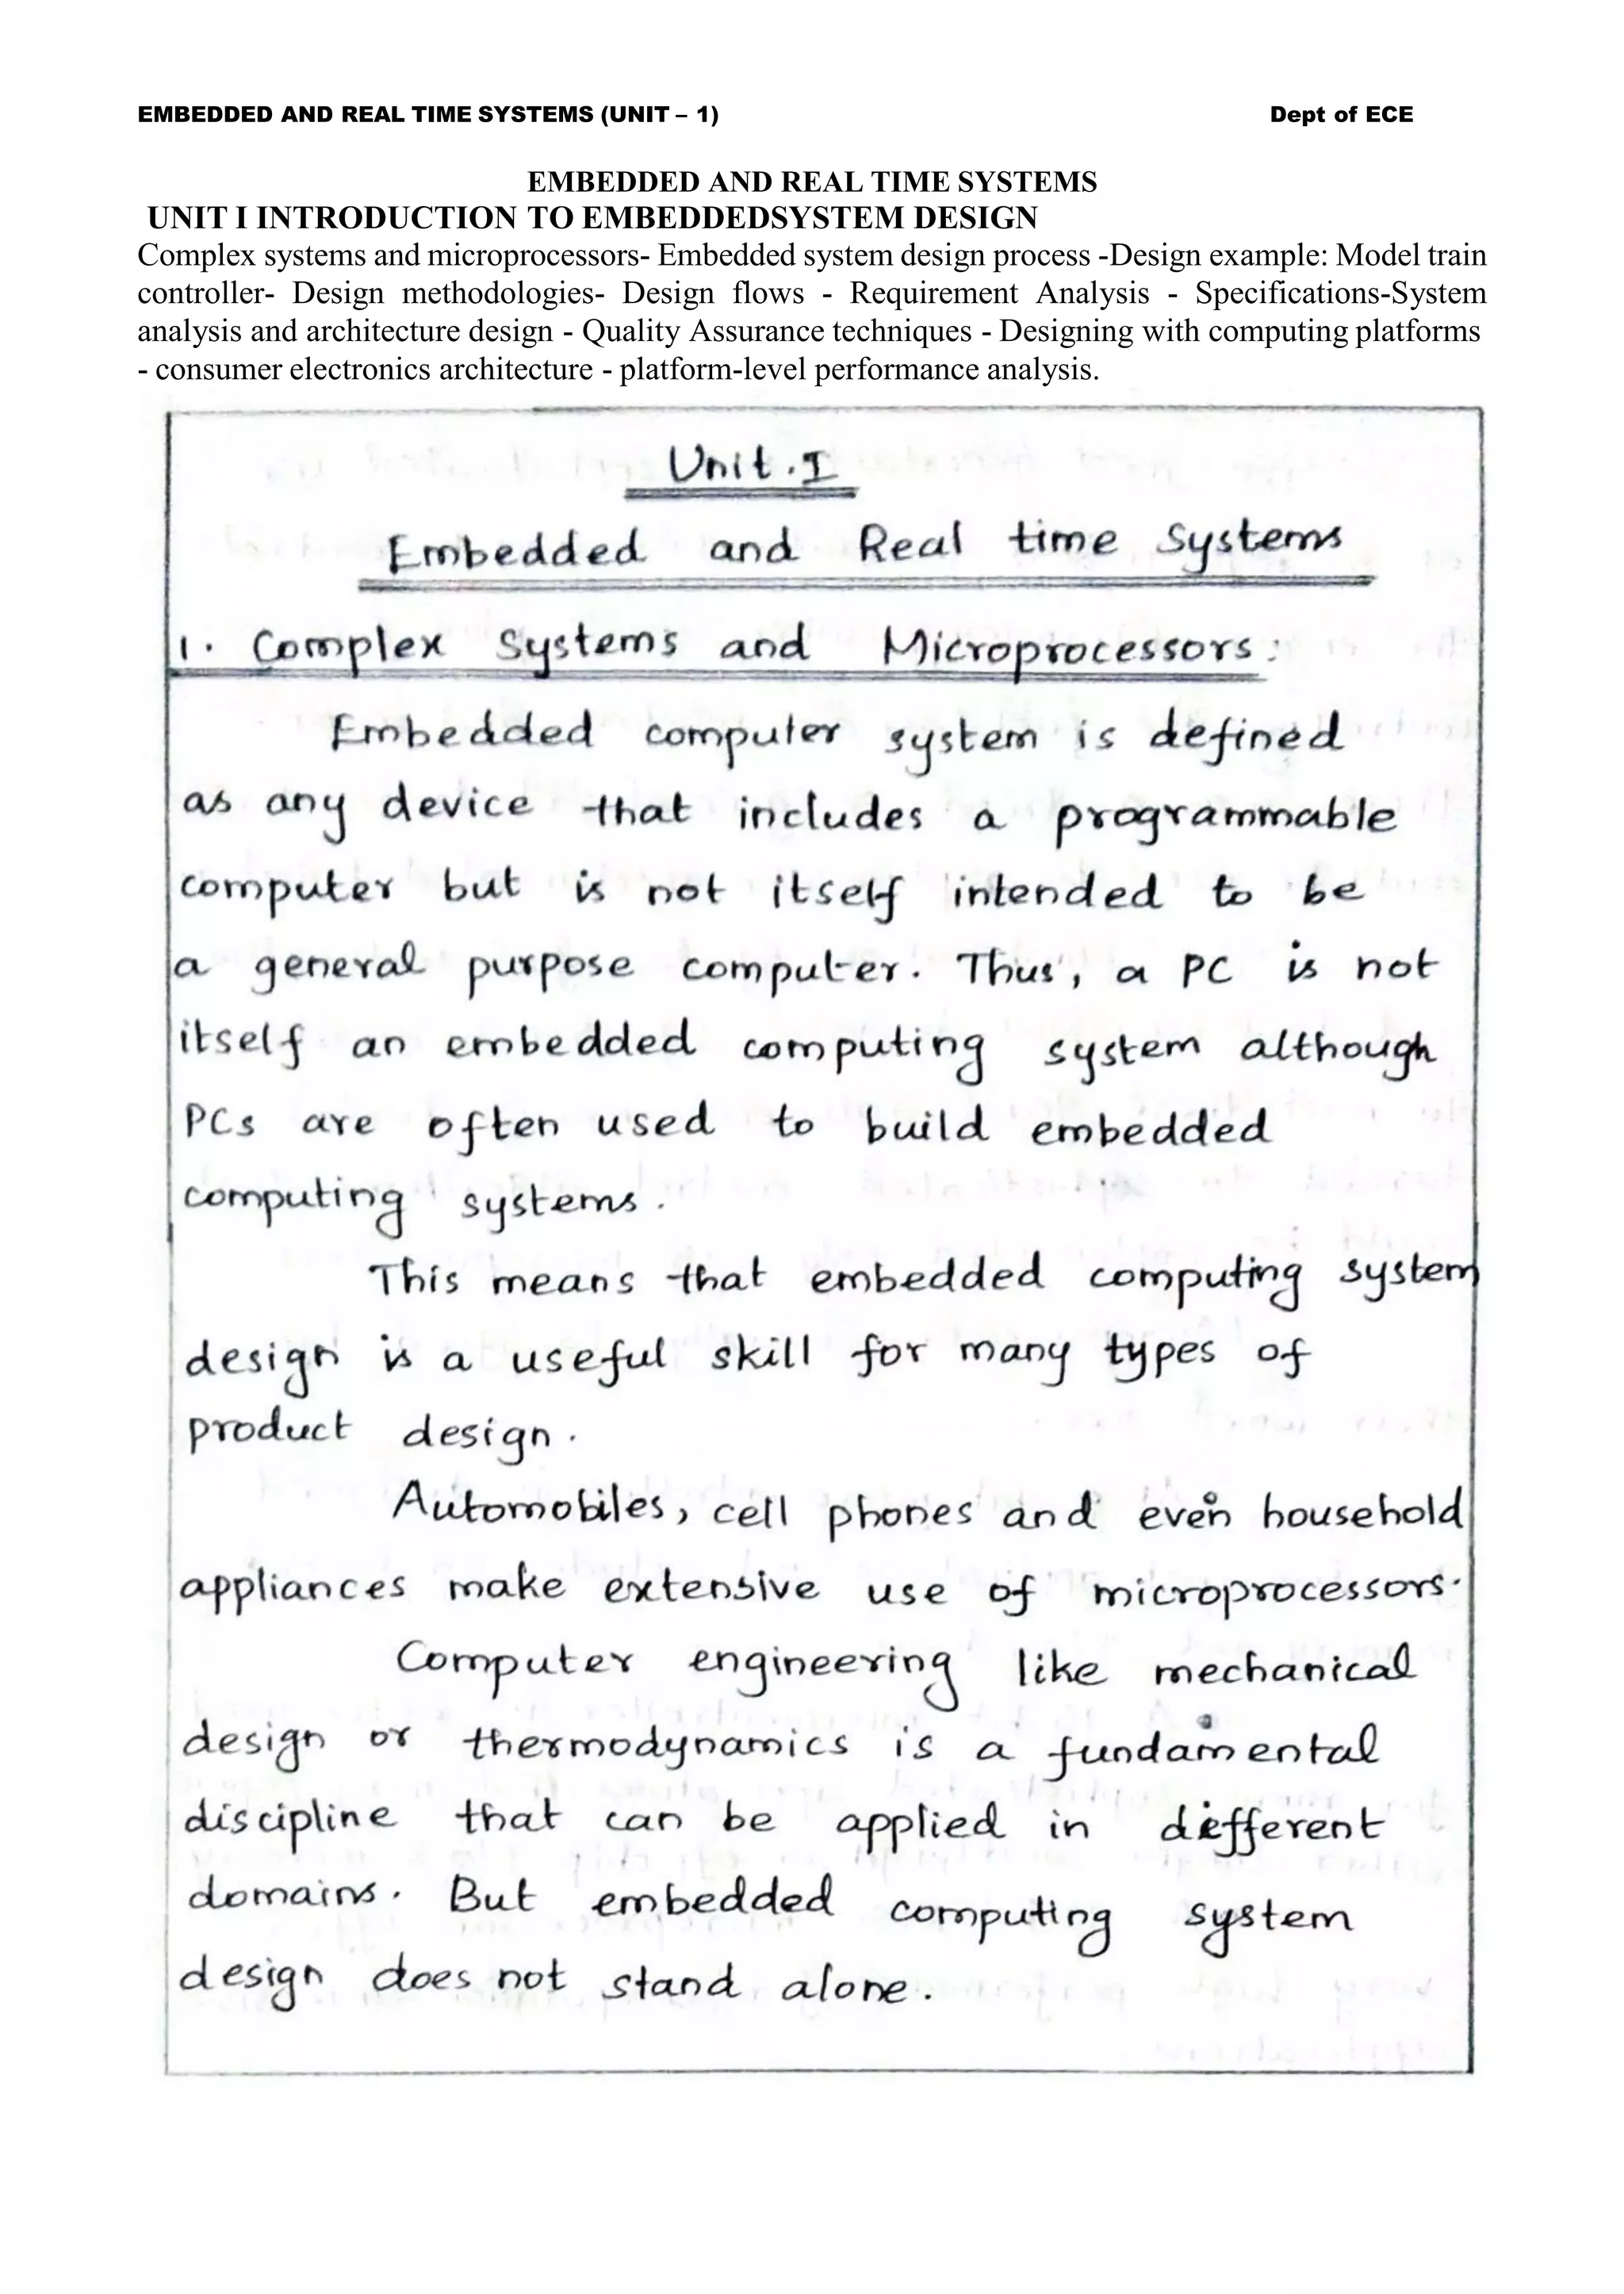 EMBEDDED AND REAL TIME SYSTEMS (UNIT – 1) Dept of ECE
EMBEDDED AND REAL TIME SYSTEMS
UNIT I INTRODUCTION TO EMBEDDEDSYSTEM DESIGN
Complex systems and microprocessors- Embedded system design process -Design example: Model train
controller- Design methodologies- Design flows - Requirement Analysis - Specifications-System
analysis and architecture design - Quality Assurance techniques - Designing with computing platforms
- consumer electronics architecture - platform-level performance analysis.
Unit.I
Embedded and Real time Systems
1. Complex Systems and Microprocessors:
Embedded computer system is defined
as any device that includes a programmable
computer but is not itself intended to be
a general purpose computer. Thus, a PC is not
itself an embedded computing system although
PCs are often used to build embedded
computing systems.
This means that embedded computing system
design is a useful skill for many types of
product design.
Automobiles, cell phones and even household
appliances make extensive use of microprocessors.
Computer engineering like mechanical
design or thermodynamics is a fundamental
discipline that can be applied in different
domains. But embedded computing system
design does not stand alone.